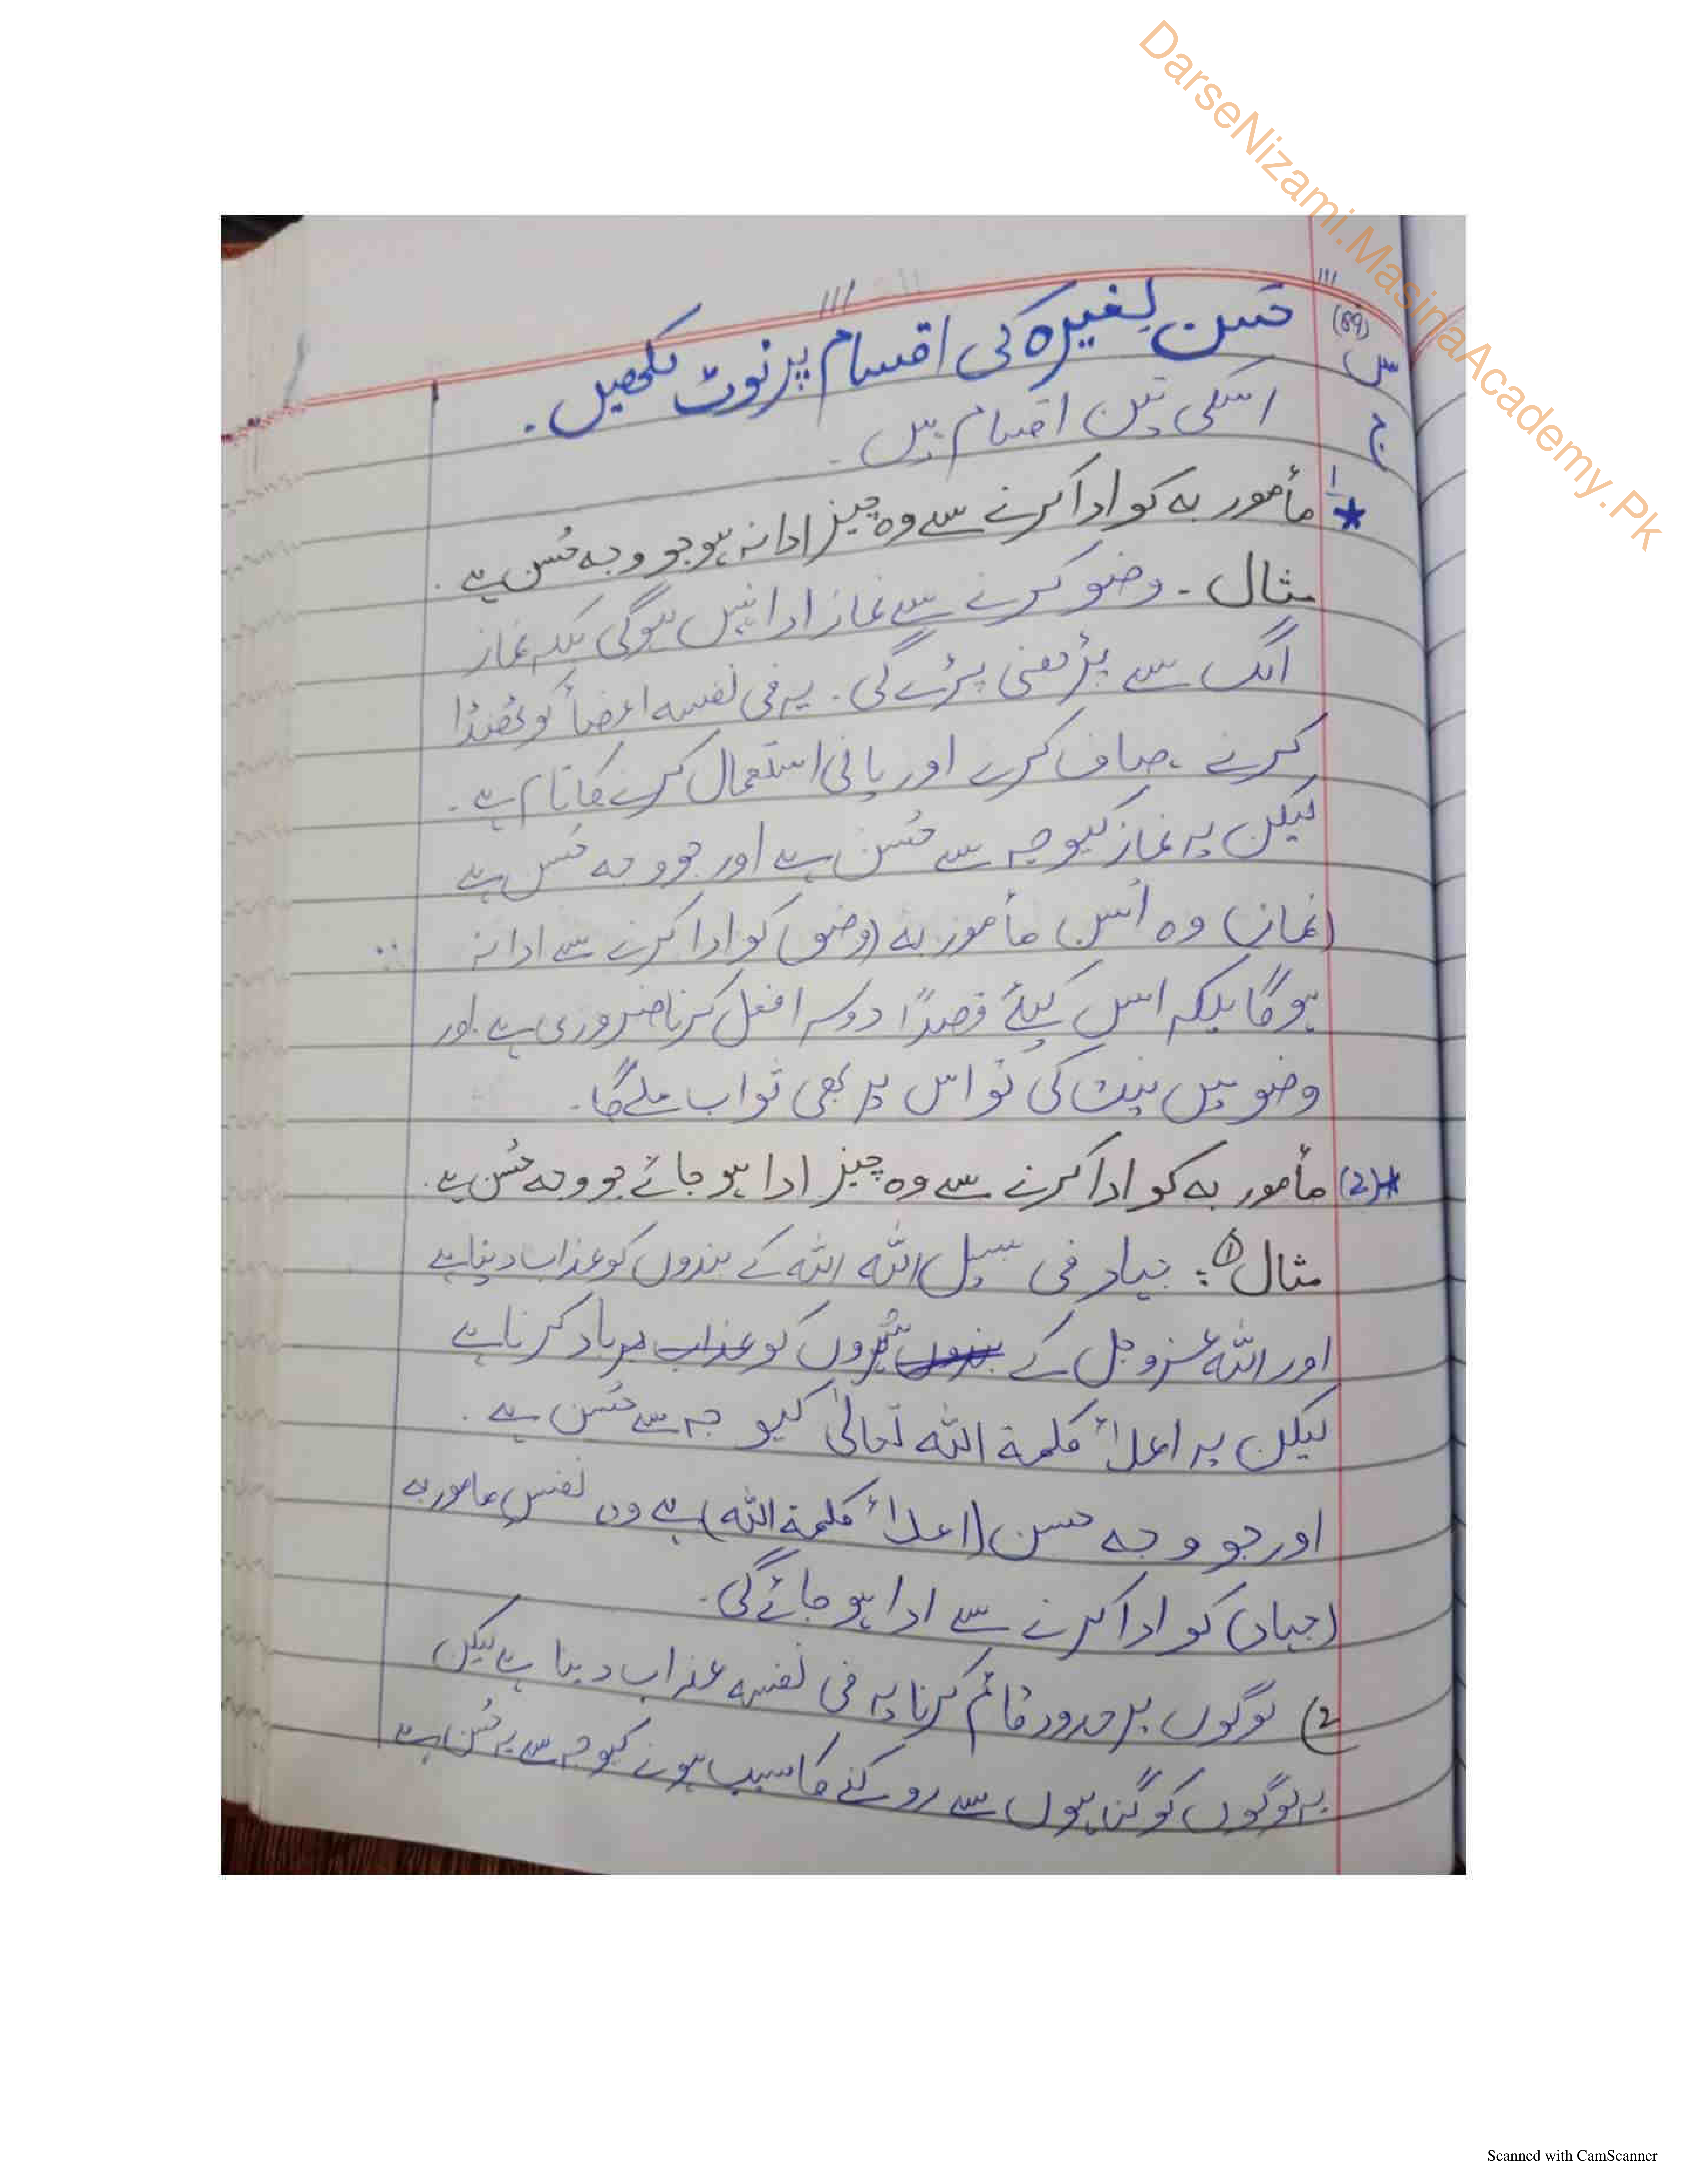 DarseNizami.MasinaAcademy.Pk
(69)
س حَسن لغیرہ کی اقسام پر نوٹ لکھیں.
ج اسکی تین اقسام ہیں.
1 مأمور بہ کو ادا کرنے سے وہ چیز ادا نہ ہو جو وجہ حُسن ہے.
مثال - وضو کرنے سے نماز ادا نہیں ہوگی بلکہ نماز
الگ سے پڑھنی پڑے گی. یہ فی نفسہ اعضأ کو ٹھنڈا
کرنے، صاف کرنے اور پانی استعمال کرنے کا نام ہے.
لیکن یہ نماز کیوجہ سے حَسن ہے اور جو وجہ حُسن ہے
(نماز) وہ اُس مأمور بہ (وضو) کو ادا کرنے سے ادا نہ
ہوگا بلکہ اس کیلئے قصداً دوسرا فعل کرنا ضروری ہے اور
وضو میں نیت کی تو اس پر بھی ثواب ملے گا.
(2) مأمور بہ کو ادا کرنے سے وہ چیز ادا ہو جائے جو وجہ حُسن ہے.
مثال ①: جہاد فی سبیل اللہ اللہ کے بندوں کو عذاب دینا ہے
اور اللہ عزوجل کے شہروں کو برباد کرنا ہے
لیکن یہ اعلأ کلمۃ اللہ تعالیٰ کیوجہ سے حَسن ہے.
اور جو وجہ حسن (اعلأ کلمۃ اللہ) ہے وہ نفسِ مامور بہ
(جہاد) کو ادا کرنے سے ادا ہو جائے گی.
2) لوگوں پر حدود قائم کرنا یہ فی نفسہ عذاب دینا ہے لیکن
یہ لوگوں کو گناہوں سے روکنے کا سبب ہونے کیوجہ سے یہ حَسن ہے
Scanned with CamScanner